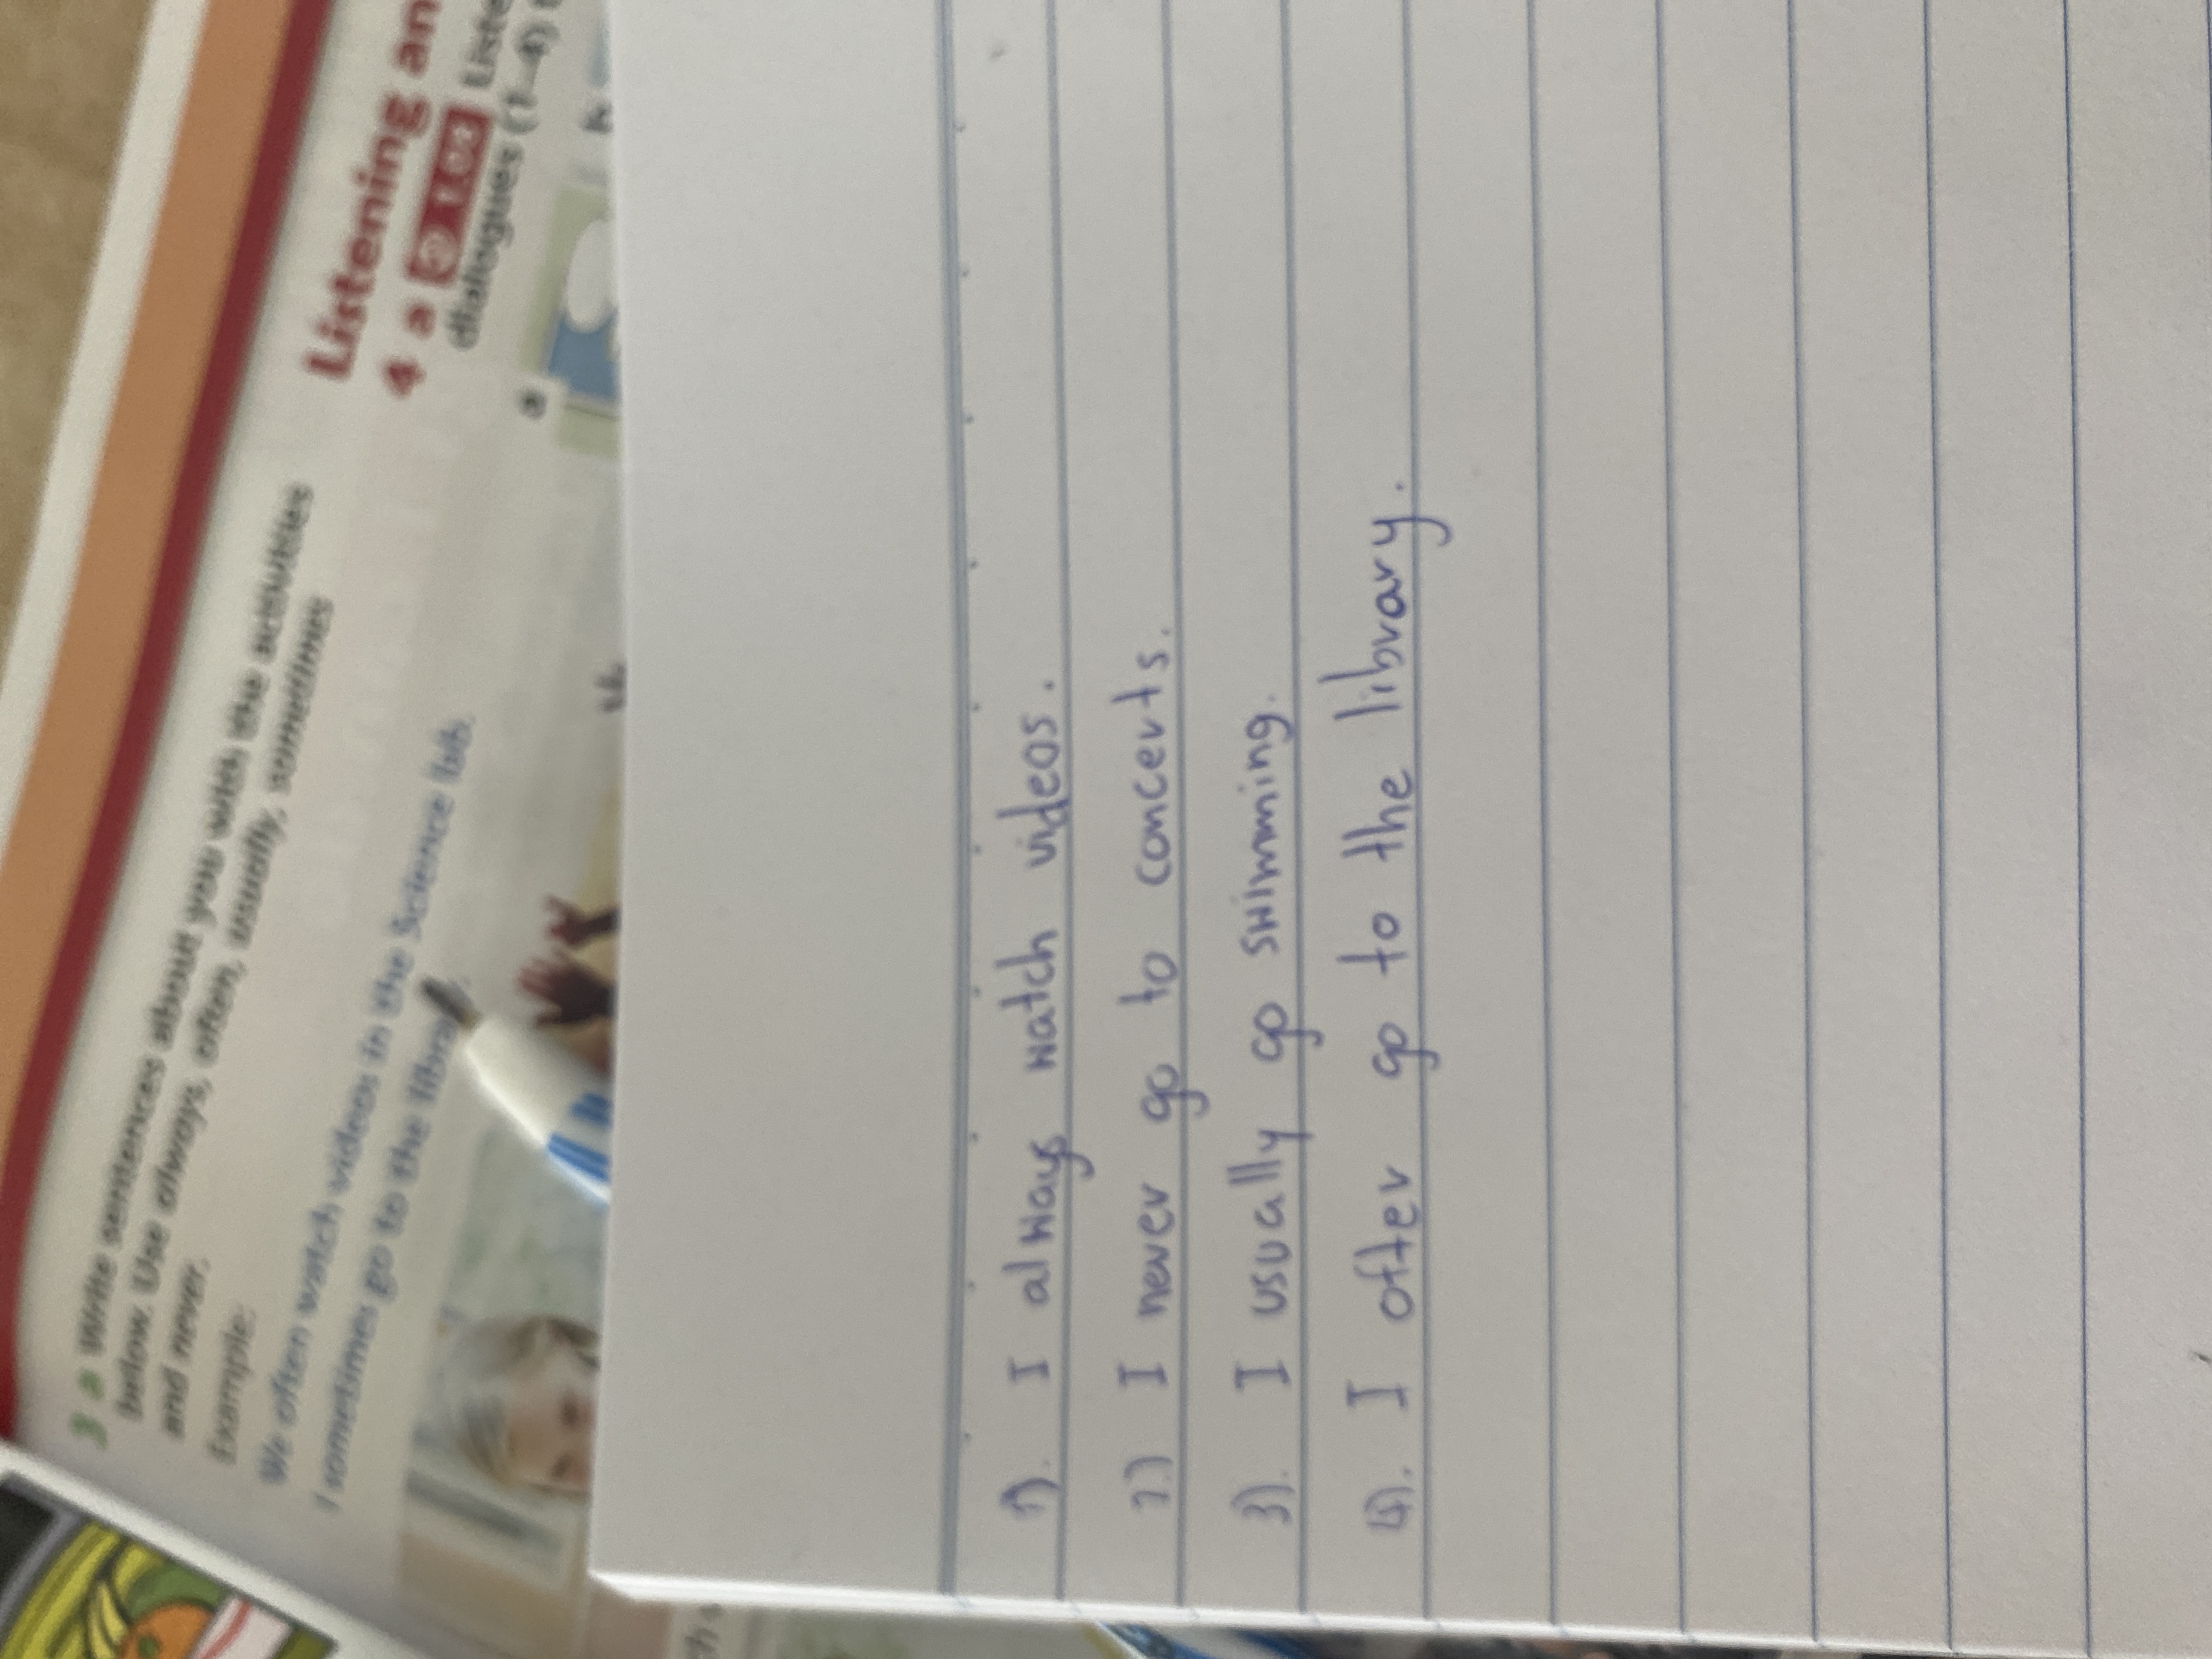 3 a Write sentences about you with the activities
below. Use always, often, usually, sometimes
and never.
Example:
We often watch videos in the Science lab.
I sometimes go to the library.
Listening an
4 a 1.08 Liste
dialogues (1–4)
a
1). I always watch videos.
2.) I never go to concerts.
3). I usually go swimming.
4). I ofter go to the library.